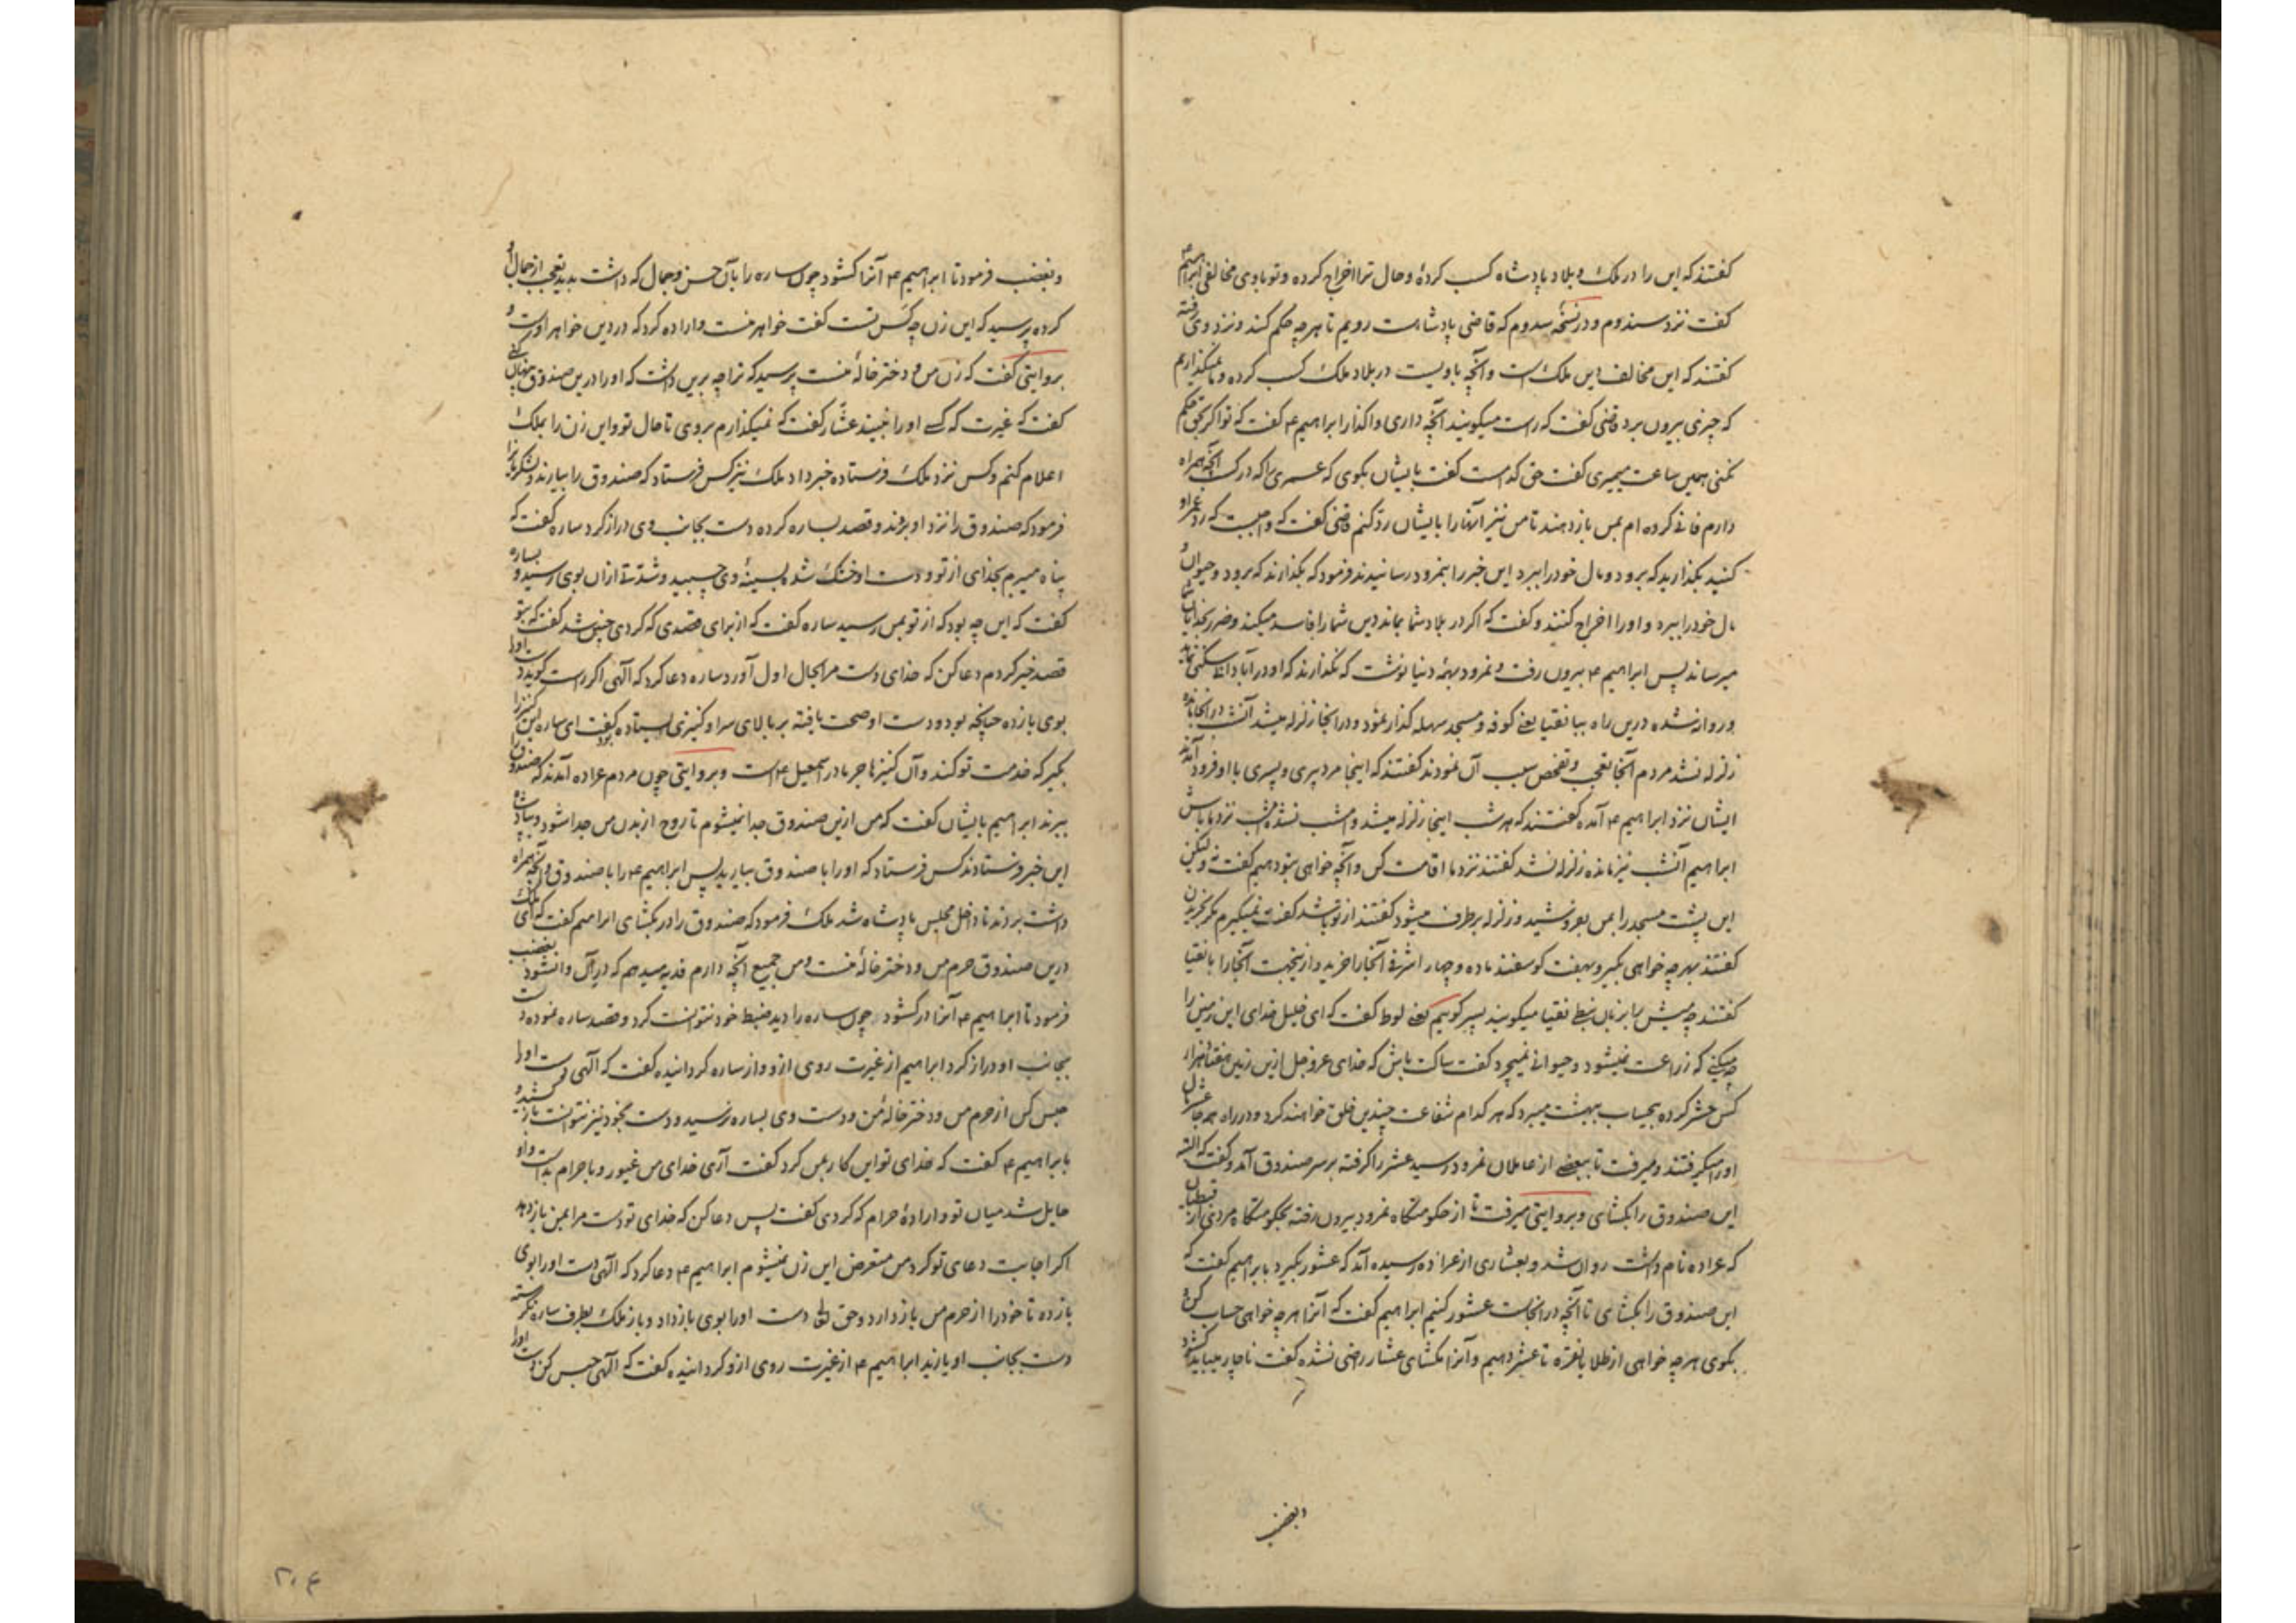 گفتند که این را در ملک و بلاد پادشاه کسب کردهٔ و حال ترا اخراج کرده و تو با وی مخالفی ابراهیم ع
گفت نزد سندوم و در نسخهٔ سدوم که قاضی پادشاست رویم تا هر چه حکم کند و نزد وی رفته
گفتند که این مخالف این ملک است و آنچه باویست در بلاد ملک کسب کرده و ما نمیگذاریم
که چیزی بیرون برد قاضی گفت که راست میگویند آنچه داری واگذار ابراهیم ع گفت که تو اگر بحق حکم
نکنی همین ساعت بمیری گفت حق کدامست گفت بایشان بگوی که عمری را که در کسب آنچه همراه
دارم فانی کرده ام بمن باز دهند تا من نیز اینها را بایشان رد کنم قاضی گفت که واجبست که رد عمر او
کنید بگذارید که برود و مال خود را ببرد این خبر را بنمرود رسانیدند فرمود که بگذارند که برود و حیوان و
مال خود را ببرد و او را اخراج کنند و گفت که اگر در بلاد شما بماند دین شما را فاسد میکند و ضرر بخدایان شما
میرساند پس ابراهیم ع بیرون رفت و نمرود بهمه دنیا نوشت که نگذارند که او در آبادانی سکنی نماید
و روانه شده درین راه ببانقیا یعنی کوفه و مسجد سهله گذار نمود و در انجا زلزله میشد آنشب در انجا مانده
زلزله نشد مردم آنجا تعجب و تفحص سبب آن نمودند گفتند که اینجا مرد پیری و پسری با او فرود آمدند
ایشان نزد ابراهیم ع آمده گفتند که هر شب اینجا زلزله میشد و امشب نشد امشب نزد ما باش
ابراهیم آنشب نیز مانده زلزله نشد گفتند نزد ما اقامت کن و آنچه خواهی بتو دهیم گفت نه ولیکن
این پشت مسجد را بمن بفروشید و زلزله برطرف میشود گفتند از تو باشد گفت نمیگیرم مگر بخریدن
گفتند بهر چه خواهی بگیر و بهفت گوسفند ماده و چهار اشرفی آنجا را خرید و ازینجهت آنجا را بانقیا
گفتند چه میش را بزبان نبط نقیا میگویند پسر گوییم یعنی لوط گفت که ای خلیل خدای این زمین را
چه میکنی که زراعت نمیشود و حیوانی نمیچرد گفت ساکت باش که خدای عزوجل ازین زمین هفتاد هزار
کس حشر کرده بیحساب ببهشت میبرد که هر کدام شفاعت چندین خلق خواهند کرد و در راه همه جا عشر مال
او را میگرفتند و میرفت تا ببعضی از عاملان نمرود رسید عشر را گرفته بر سر صندوق آمد و گفت که البته
این صندوق را بگشای و بروایتی میرفت تا از حکومتگاه نمرود بیرون رفته بحکومتگاه مردی از قبطیان
که عراده نام داشت روان شد و بعشاری از عراده رسیده آمد که عشور بگیرد بابراهیم گفت که
این صندوق را بگشای تا آنچه در انجاست عشور کنیم ابراهیم گفت که آنرا هر چه خواهی حساب کن و
بگوی هر چه خواهی از طلا یا نقره تا عشر دهیم و آنرا مگشای عشار راضی نشده گفت ناچار میباید گشود
وبغضب
وبغضب فرمود تا ابراهیم ع آنرا گشود چون ساره را بآن حسن و جمال که داشت بدید تعجب از جمال او
کرده پرسید که این زن چه کس تست گفت خواهر منست و اراده کرد که در دین خواهر اوست و
بروایتی گفت که زن من و دختر خالهٔ منست پرسید که ترا چه برین داشت که او را درین صندوق پنهان کنی
گفت که غیرت که کسی او را نبیند عشار گفت که نمیگذارم بروی تا حال تو و این زن را بملک
اعلام کنم و کس نزد ملک فرستاده خبر داد ملک نیز کس فرستاد که صندوق را بیارند
فرمود که صندوق را نزد او بردند و قصد بساره کرده دست بجانب وی دراز کرد ساره گفت که
پناه میبرم بخدای از تو و دست او خشک شد و بسینهٔ وی چسبید و شدتی ازان بوی رسید و بساره
گفت که این چه بود که از تو بمن رسید ساره گفت که از برای قصدی که کردی چنین شد گفت که بتو
قصد خیر کردم دعا کن که خدای دست مرا بحال اول آورد ساره دعا کرد که الهی اگر راست گوید دست او را
بوی باز ده چنانکه بود و دست او صحت یافته بر بالای سر او کنیزی ایستاده بود گفت ای ساره این کنیز را
بگیر که خدمت تو کند و آن کنیز هاجر مادر اسمعیل ع است و بروایتی چون مردم عراده آمدند که صندوق را
ببرند ابراهیم بایشان گفت که من ازین صندوق جدا نمیشوم تا روح از بدن من جدا شود و بپادشاه
این خبر فرستادند کس فرستاد که او را با صندوق بیارید پس ابراهیم ع را با صندوق و آنچه همراه
داشت بردند تا داخل مجلس پادشاه شد ملک فرمود که صندوق را در بگشای ابراهیم گفت که ای ملک
درین صندوق حرم من و دختر خالهٔ منست و من جمیع آنچه دارم فدیه میدهم که در آن وا نشود بغضب
فرمود تا ابراهیم ع آنرا در گشود چون ساره را دید ضبط خود نتوانست کرد و قصد ساره نموده دست
بجانب او دراز کرد ابراهیم از غیرت روی ازو و از ساره گردانیده گفت که الهی دست او را
حبس کن از حرم من و دختر خالهٔ من و دست وی بساره نرسید و دست بخود نیز نتوانست باز کشید و
بابراهیم ع گفت که خدای تو این کار بمن کرد گفت آری خدای من غیور و با حرام بد است و او
حایل شد میان تو و ارادهٔ حرام که کردی گفت پس دعا کن که خدای تو دست مرا بمن باز دهد
اگر اجابت دعای تو کرد من متعرض این زن نمیشوم ابراهیم ع دعا کرد که الهی دست او را بوی
باز ده تا خود را از حرم من باز دارد و حق تعالی دست او را بوی باز داد و باز ملک بطرف ساره نگریسته
دست بجانب او یازید ابراهیم ع از غیرت روی ازو گردانیده گفت که الهی حبس کن دست او را
۲۰۴